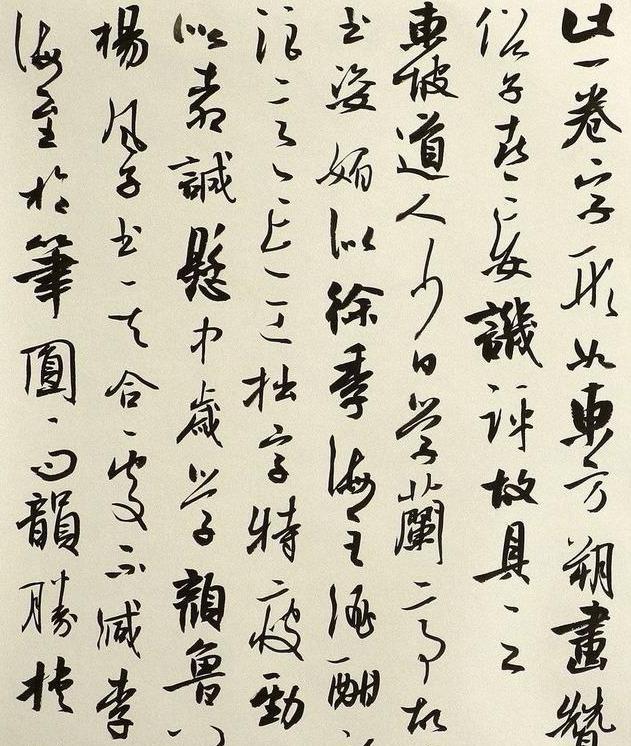 此一卷字形如東方朔畫贊
俗子喜妄譏評故具之
東坡道人少日學蘭亭故
書姿媚似徐季海至酒酣
浪意忘工拙字特瘦勁
似柳誠懸中歲學顏魯公
楊風子書其合處不減李
海至於筆圓而韻勝挾